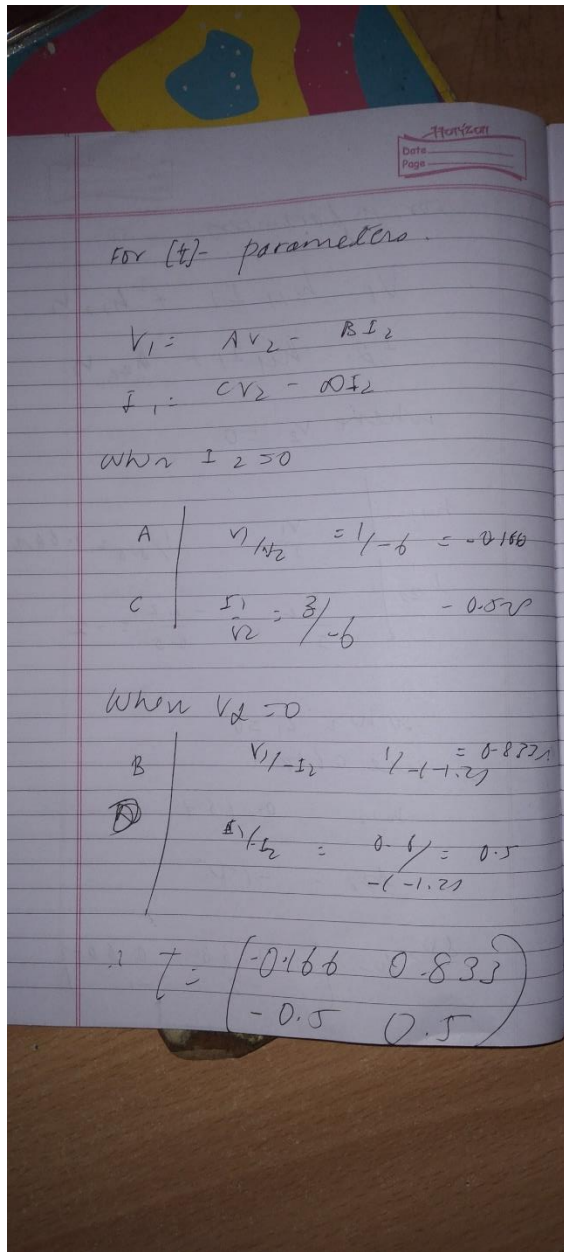 Horizon
Date
Page
For [t]- parameters.
V1 = AV2 - BI2
I1 = CV2 - DI2
When I2=0
A | V1/V2 = 1/-6 = -0.166
C | I1/V2 = 3/-6 - 0.5v
When V2=0
B | V1/-I2 1/-(-1.2) = 0.833
D
I1/-I2 = 0.6/-(-1.2) = 0.5
T = (-0.166 0.833
-0.5 0.5)